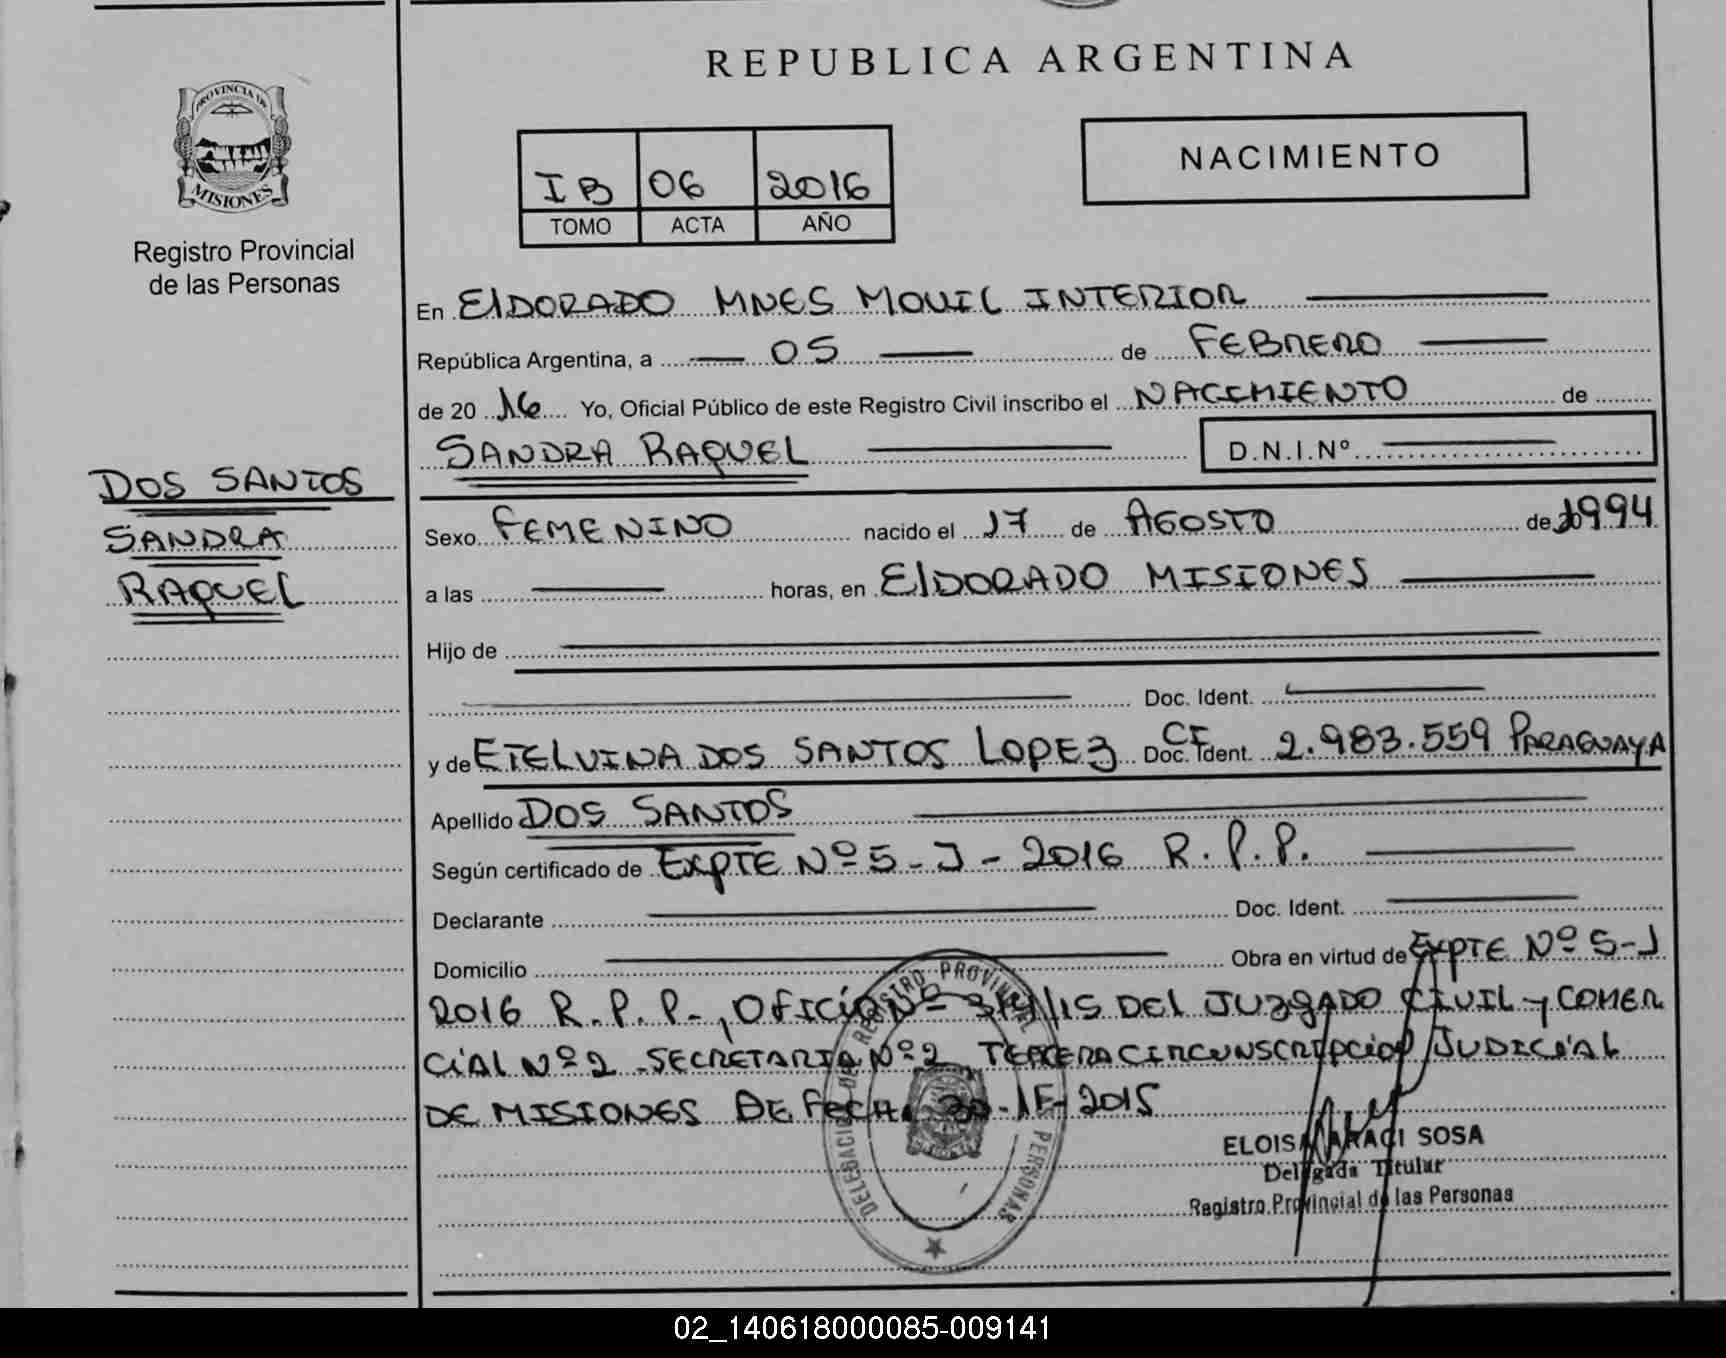 REPUBLICA ARGENTINA
PROVINCIA DE
MISIONES
Registro Provincial
de las Personas
IB 06 2016
TOMO ACTA AÑO
NACIMIENTO
En ElDORADO MNES MOVIL INTERIOR
República Argentina, a 05 de FEBRERO
de 20 16 Yo, Oficial Público de este Registro Civil inscribo el NACIMIENTO de
SANDRA RAQUEL D.N.I.Nº
DOS SANTOS
SANDRA
RAQUEL
Sexo FEMENINO nacido el 17 de AGOSTO de 1994
a las horas, en ElDORADO MISIONES
Hijo de
Doc. Ident.
y de ETELVINA DOS SANTOS LOPEZ Doc. Ident. CI 2.983.559 PARAGUAYA
Apellido DOS SANTOS
Según certificado de EXPTE Nº 5-J-2016 R.P.P.
Declarante Doc. Ident.
Domicilio Obra en virtud de EXPTE Nº 5-J
2016 R.P.P., OFICIO Nº DEl JUZGADO CIVIL y COMER
CiAL Nº 2 SECRETARIA Nº 2 TERCERA CIRCUNSCRIPCION JUDICIAL
DE MISIONES DE FECHA 2015
DELEGACION DE REGISTRO PROVINCIAL PERSONAS
ELOISA ARACI SOSA
Delegada Titular
Registro Provincial de las Personas
02_140618000085-009141